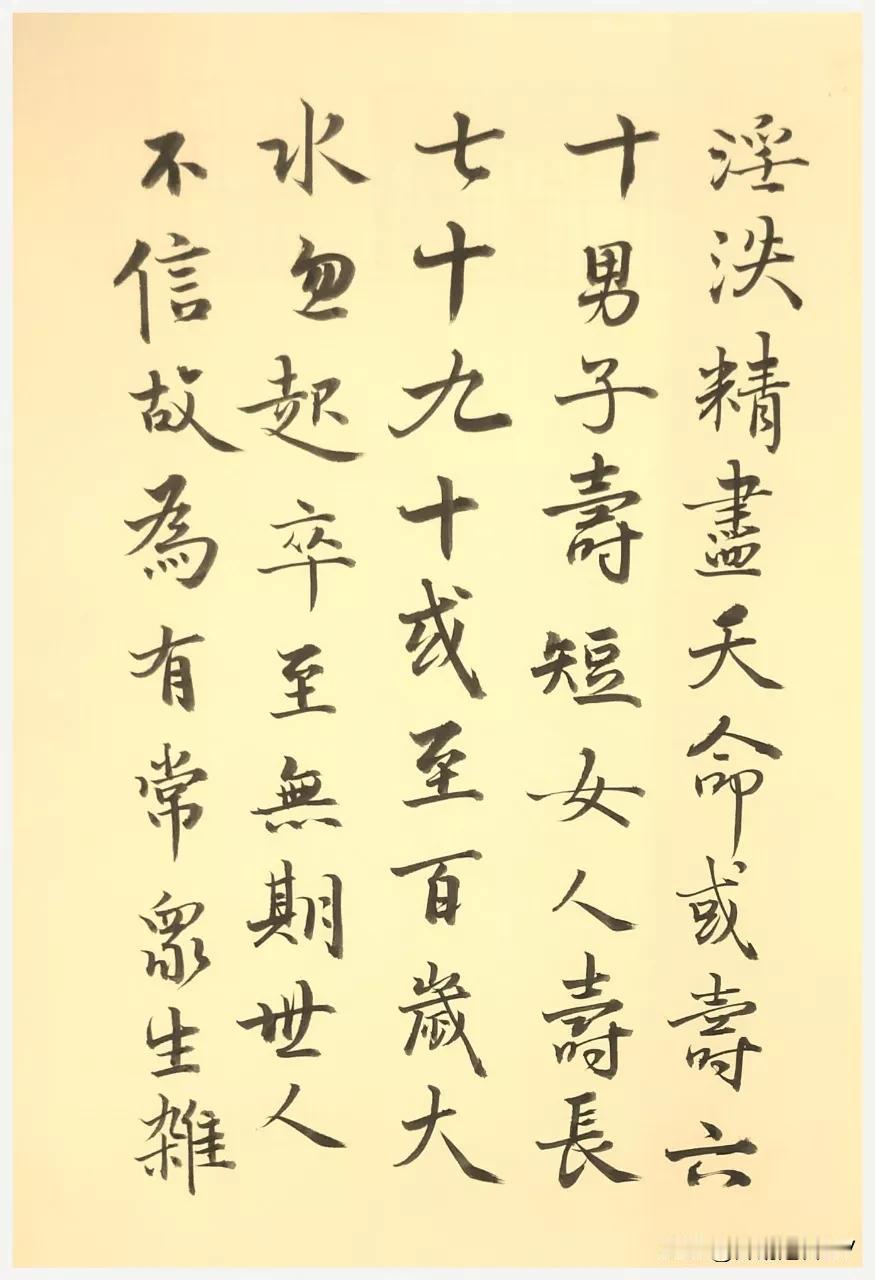 淫泆精盡天命或壽六
十男子壽短女人壽長
七十九十或至百歲大
水忽起卒至無期世人
不信故為有常眾生雜